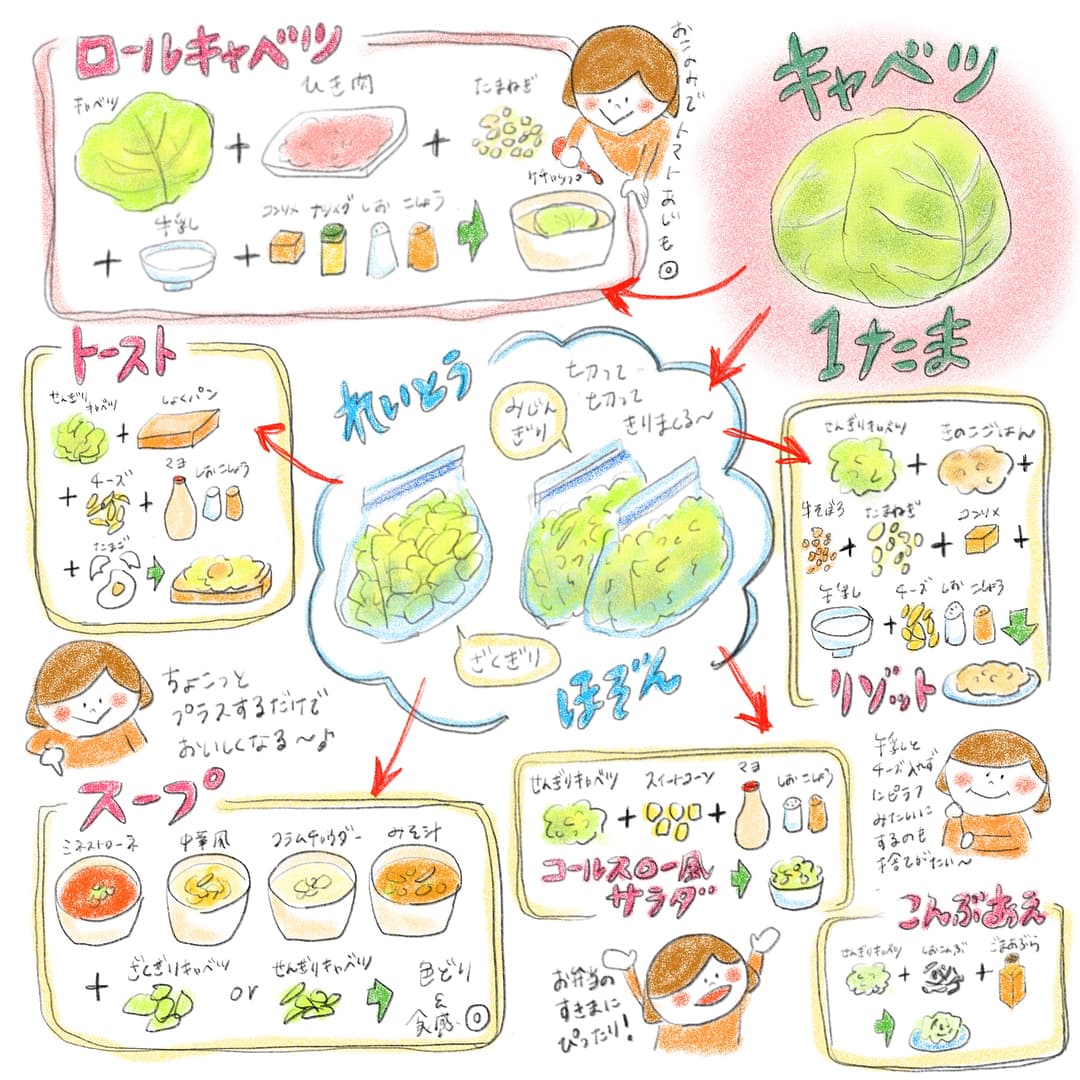 ロールキャベツ
キャベツ
ひき肉
たまねぎ
牛乳
コンソメ
ナツメグ
しお
こしょう
ケチャップ
おこのみで
トマトあじも◎
キャベツ
1たま
トースト
せんぎり
キャベツ
しょくパン
チーズ
マヨ
しおこしょう
たまご
れいとう
みじん
ぎり
切って
切って
きりまくる〜
ざくぎり
ほぞん
せんぎりキャベツ
きのこごはん
牛そぼろ
たまねぎ
コンソメ
牛乳
チーズ
しお
こしょう
リゾット
ちょこっと
プラスするだけで
おいしくなる〜♪
牛乳と
チーズ入れず
にピラフ
みたいに
するのも
捨てがたい〜
スープ
ミネストローネ
中華風
クラムチャウダー
みそ汁
ざくぎりキャベツ
or
せんぎりキャベツ
色どり
&
食感◎
せんぎりキャベツ
スイートコーン
マヨ
しおこしょう
コールスロー風
サラダ
お弁当の
すきまに
ぴったり!
こんぶあえ
せんぎりキャベツ
しおこんぶ
ごまあぶら